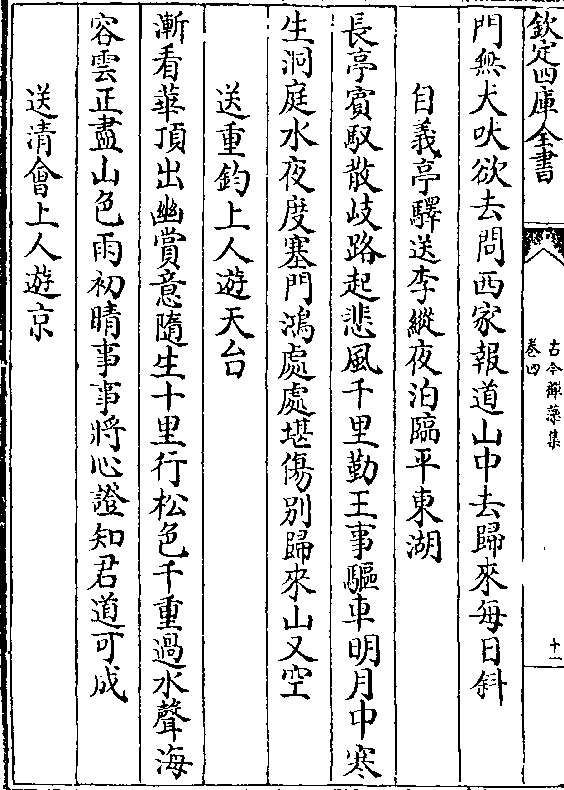 欽定四庫全書
古今禪藻集
卷四
十一
門無犬吠欲去問西家報道山中去歸來每日斜
自義亭驛送李縱夜泊臨平東湖
長亭賔馭散歧路起悲風千里勤王事驅車明月中寒
生洞庭水夜度塞門鴻處處堪傷別歸來山又空
送重鈞上人遊天台
漸看華頂出幽賞意隨生十里行松色千重過水聲海
容雲正盡山色雨初晴事事將心證知君道可成
送清會上人遊京